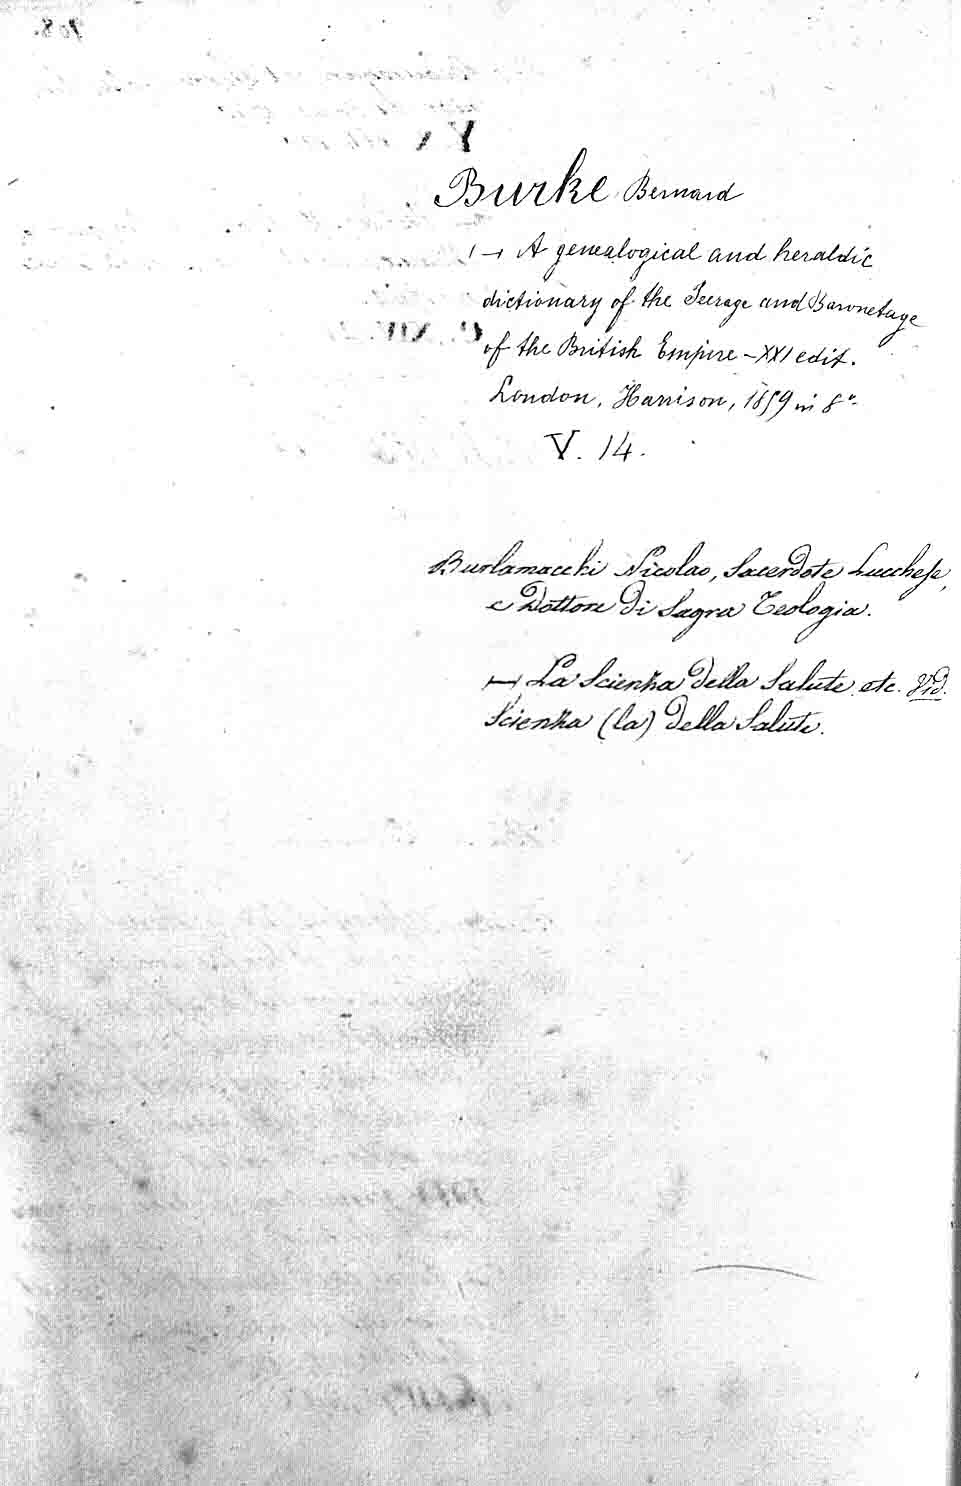 Burke Bernard
1 — A genealogical and heraldic
dictionary of the Peerage and Baronetage
of the British Empire – XXI edit.
London, Harrison, 1859 in 8°.
V. 14.
Burlamacchi Nicolao, Sacerdote Lucchese,
e Dottore di Sagra Teologia.
— La Scienza della Salute etc. Vid.
Scienza (la) della Salute.